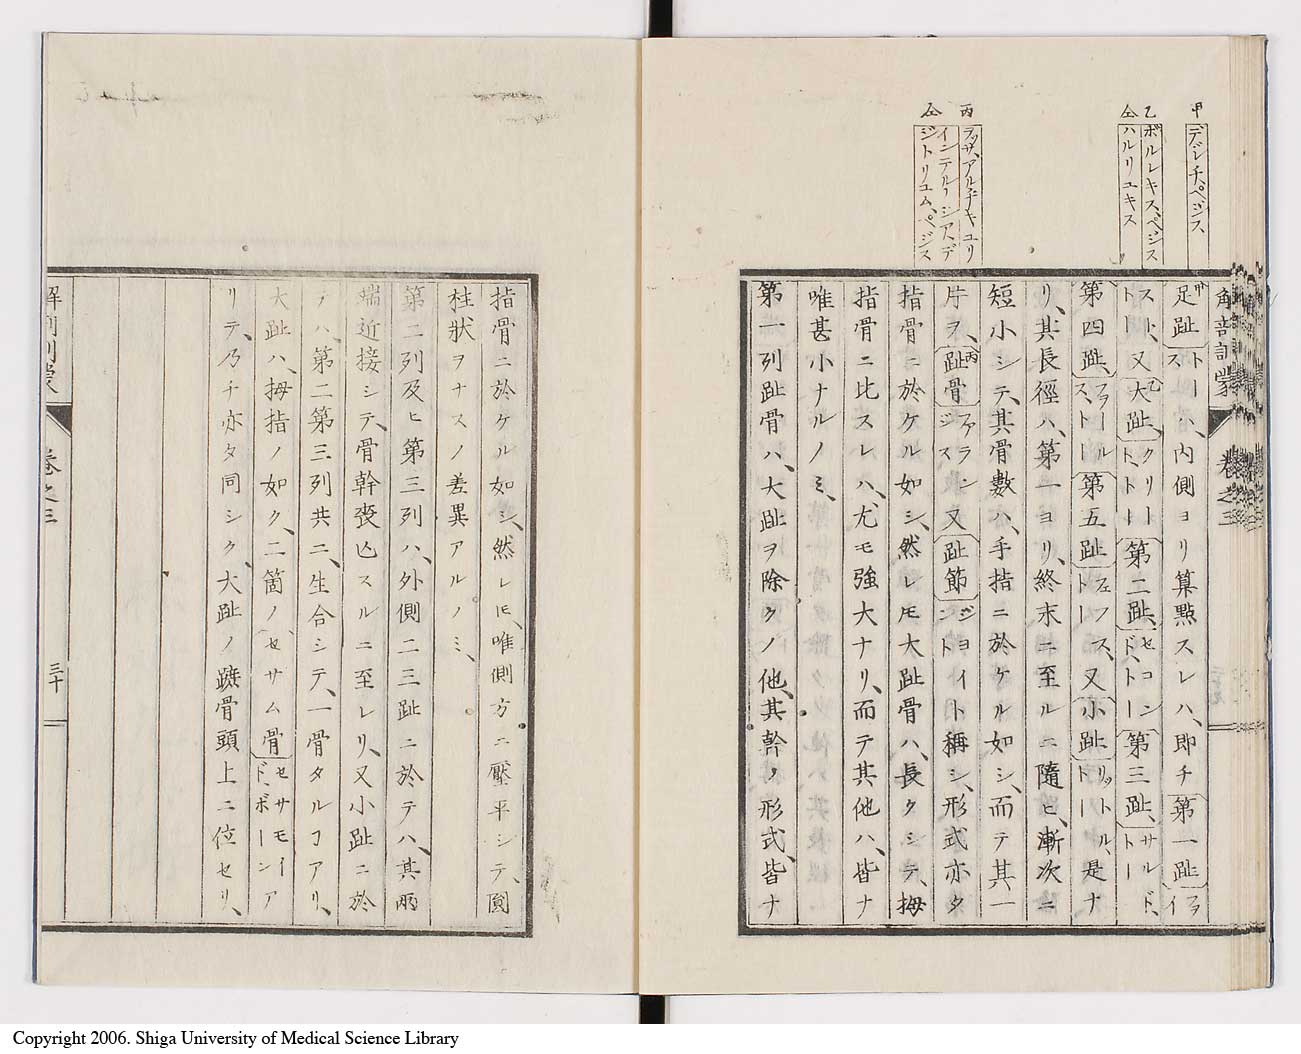 甲
デシチ、ペジス
乙
ボルレキス、ペジス
仝
ハルリユキス
丙
ヲッサ、アルチキユリ
仝
インテルノシア、デ
ジトリユム、ペジス
解剖訓蒙 卷之三
甲足趾トース ハ、内側ヨリ算點スレハ、即チ第一趾ファイ
スト、トー 又乙大趾、グリートト、トー 第二趾、セコンド、トー 第三趾、サルド、トー
第四趾、ファールスト、トー 第五趾フェフス、トー 又小趾リットル、トー 是ナ
リ、其長徑ハ、第一ヨリ、終末ニ至ルニ隨ヒ、漸次ニ
短小シテ、其骨數ハ、手指ニ於ケル如シ、而テ其一
片ヲ、丙趾骨ファランジス 又趾節ジョイント ト稱シ、形式亦タ
指骨ニ於ケル如シ、然レ𪜈大趾骨ハ、長クシテ、拇
指骨ニ比スレハ、尤モ強大ナリ、而テ其他ハ、皆
唯甚小ナルノミ、
第一列趾骨ハ、大趾ヲ除クノ他、其幹ノ形式、皆ナ
指骨ニ於ケル如シ、然レ𪜈、唯側方ニ壓平シテ、圓
柱狀ヲナスノ差異アルノミ、
第二列及ヒ第三列ハ、外側二三趾ニ於テハ、其兩
端近接シテ、骨幹喪亾スルニ至レリ、又小趾ニ於
テハ、第二第三列共ニ、生合シテ、一骨タルヿアリ、
大趾ハ、拇指ノ如ク、二箇ノセサム骨セサモイド、ボーン ア
リテ、乃チ亦タ同シク、大趾ノ蹠骨頭上ニ位セリ、
解剖訓蒙 卷之三 三十
Copyright 2006. Shiga University of Medical Science Library